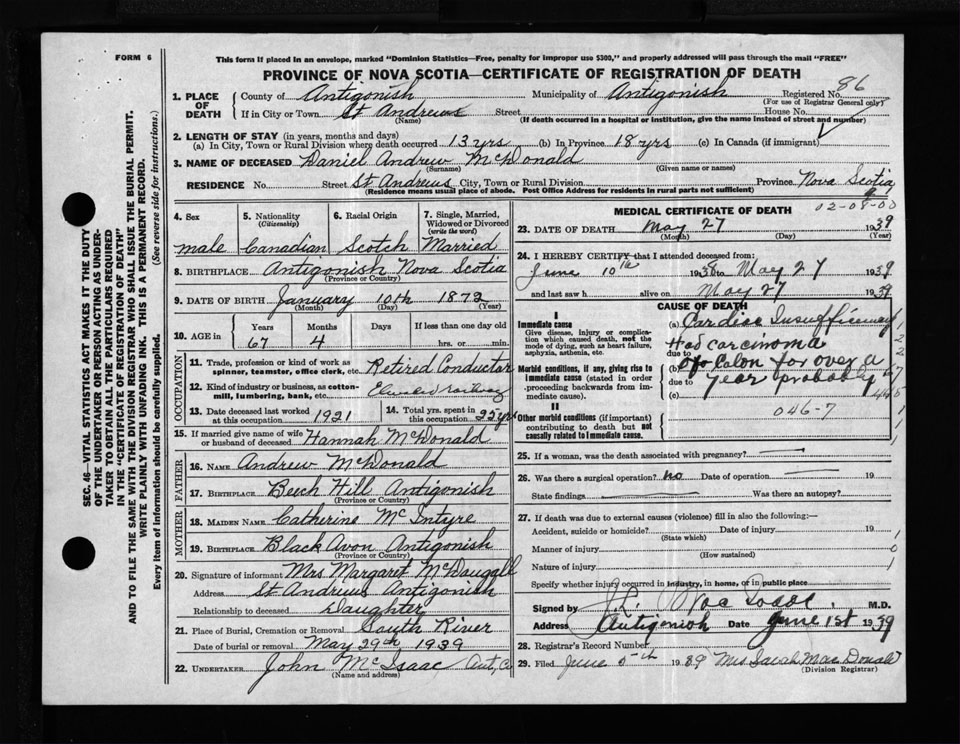 FORM 6
This form if placed in an envelope, marked "Dominion Statistics—Free, penalty for improper use $300," and properly addressed will pass through the mail "FREE"
PROVINCE OF NOVA SCOTIA—CERTIFICATE OF REGISTRATION OF DEATH
86
1. PLACE OF DEATH
County of Antigonish Municipality of Antigonish Registered No.
(For use of Registrar General only)
If in City or Town St Andrews Street House No.
(Name) (If death occurred in a hospital or institution, give the name instead of street and number)
2. LENGTH OF STAY (in years, months and days)
(a) In City, Town or Rural Division where death occurred 13 yrs (b) In Province 18 yrs (c) In Canada (if immigrant)
3. NAME OF DECEASED Daniel Andrew McDonald
(Surname) (Given name or names)
RESIDENCE No. Street St Andrews City, Town or Rural Division Province Nova Scotia
(Residence means usual place of abode. Post Office Address for residents in rural parts not sufficient)
4. Sex
male
5. Nationality
(Citizenship)
Canadian
6. Racial Origin
Scotch
7. Single, Married, Widowed or Divorced
(write the word)
Married
8. BIRTHPLACE Antigonish Nova Scotia
(Province or Country)
9. DATE OF BIRTH January 10th 1872
(Month) (Day) (Year)
10. AGE in
Years Months Days If less than one day old
67 4 hrs. or min.
OCCUPATION
11. Trade, profession or kind of work as spinner, teamster, office clerk, etc. Retired Conductor
12. Kind of industry or business, as cotton-mill, lumbering, bank, etc. Elevated railway
13. Date deceased last worked at this occupation 1921
14. Total yrs. spent in this occupation 25 yrs
15. If married give name of wife or husband of deceased Hannah McDonald
FATHER
16. Name Andrew McDonald
17. Birthplace Beech Hill Antigonish
(Province or Country)
MOTHER
18. Maiden Name Catherine McIntyre
19. Birthplace Black Avon Antigonish
(Province or Country)
20. Signature of informant Mrs Margaret McDougall
Address St Andrews Antigonish
Relationship to deceased Daughter
21. Place of Burial, Cremation or Removal South River
Date of burial or removal May 29th 1939
22. UNDERTAKER John McIsaac Ant, Co
(Name and address)
MEDICAL CERTIFICATE OF DEATH
02-08-00
23. DATE OF DEATH May 27 1939
(Month) (Day) (Year)
24. I HEREBY CERTIFY that I attended deceased from:
June 10th 1938 to May 27 1939
and last saw h alive on May 27 1939
CAUSE OF DEATH
I
Immediate cause
Give disease, injury or complication which caused death, not the mode of dying, such as heart failure, asphyxia, asthenia, etc.
Morbid conditions, if any, giving rise to immediate cause (stated in order proceeding backwards from immediate cause).
II
Other morbid conditions (if important) contributing to death but not causally related to immediate cause.
(a) Cardiac Insufficiency
due to Had carcinoma
(b) of Colon for over a
due to year probably
(c)
046-7
25. If a woman, was the death associated with pregnancy?
26. Was there a surgical operation? no Date of operation 19
State findings Was there an autopsy?
27. If death was due to external causes (violence) fill in also the following:—
Accident, suicide or homicide? Date of injury 19
(State which)
Manner of injury
(How sustained)
Nature of injury
Specify whether injury occurred in industry, in home, or in public place
Signed by M.D.
Address Antigonish Date June 1st 1939
28. Registrar's Record Number
29. Filed June 5th 1939 Mrs Sarah MacDonald
(Division Registrar)
SEC. 46—VITAL STATISTICS ACT MAKES IT THE DUTY
OF THE UNDERTAKER OR PERSON ACTING AS UNDER-
TAKER TO OBTAIN ALL THE PARTICULARS REQUIRED
IN THE "CERTIFICATE OF REGISTRATION OF DEATH"
AND TO FILE THE SAME WITH THE DIVISION REGISTRAR WHO SHALL ISSUE THE BURIAL PERMIT.
WRITE PLAINLY WITH UNFADING INK. THIS IS A PERMANENT RECORD.
Every item of information should be carefully supplied. (See reverse side for instructions.)